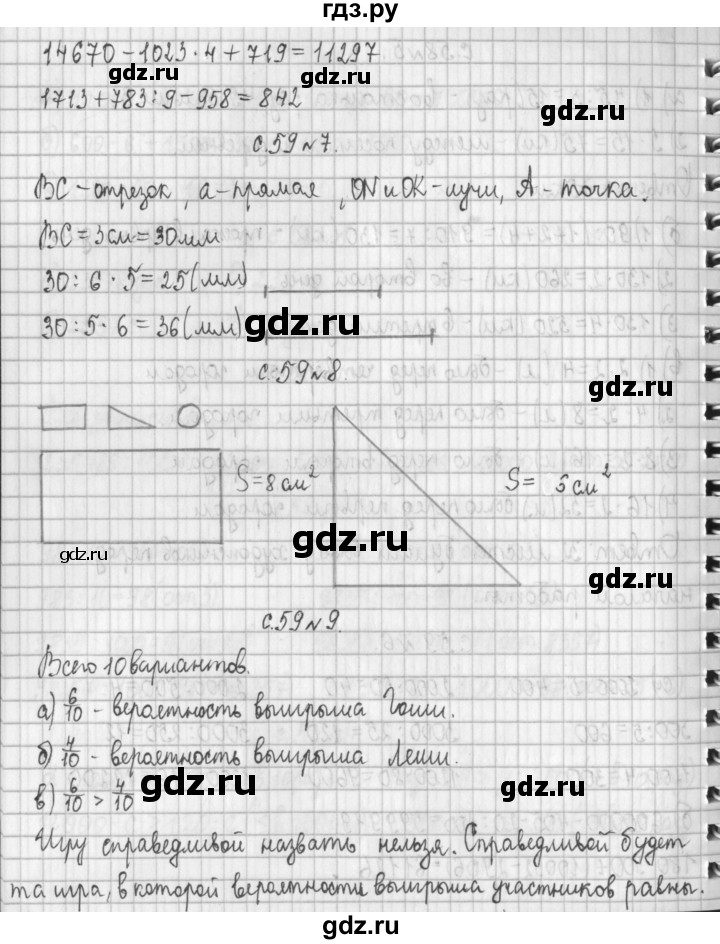 гдз.ру
14670 - 1023 · 4 + 719 = 11297
gdz.ru
gdz.ru
1713 + 783 : 9 - 958 = 842
gdz.ru
с.59 №7.
ВС - отрезок, а - прямая, ON и OK - лучи, А - точка.
gdz.ru
ВС = 3 см = 30 мм
gdz.ru
30 : 6 · 5 = 25 (мм)
30 : 5 · 6 = 36 (мм)
gdz.ru
с.59 №8.
gdz.ru
S = 8 см²
S = 6 см²
gdz.ru
gdz.ru
gdz.ru
с.59 №9.
Всего 10 вариантов.
gdz.ru
а) 6/10 - вероятность выигрыша Гоши.
б) 4/10 - вероятность выигрыша Леши.
gdz.ru
gdz.ru
в) 6/10 > 4/10
Игру справедливой назвать нельзя. Справедливой будет
та игра, в которой вероятности выигрыша участников равны.
gdz.ru